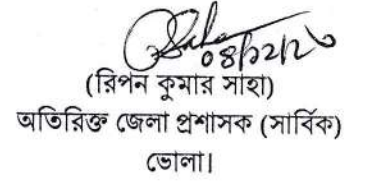 ০৪/১২/২৩
(রিপন কুমার সাহা)
অতিরিক্ত জেলা প্রশাসক (সার্বিক)
ভোলা।